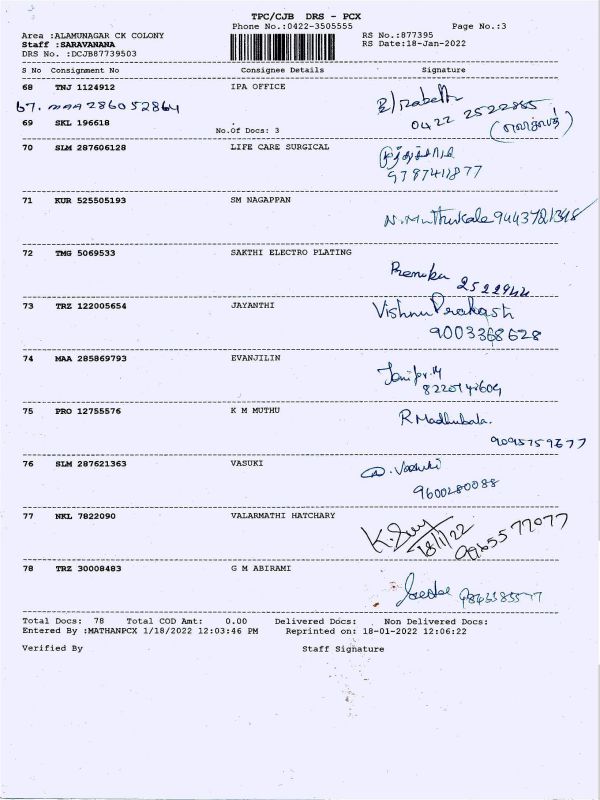 TPC/CJB DRS - PCX
Phone No.:0422-3505555 Page No.:3
Area :ALAMUNAGAR CK COLONY RS No.:877395
Staff :SARAVANANA RS Date:18-Jan-2022
DRS No. :DCJB87739503
S No Consignment No Consignee Details Signature
68 TNJ 1124912 IPA OFFICE Elizabeth
67. MAA 286052864 0422 2522865
69 SKL 196618 .
No.Of Docs: 3
70 SLM 287606128 LIFE CARE SURGICAL
9787411877
71 KUR 525505193 SM NAGAPPAN
N. Muthukala 9443721348
72 TMG 5069533 SAKTHI ELECTRO PLATING
Renuka 2522944
73 TRZ 122005654 JAYANTHI Vishnu Prakash
9003368628
74 MAA 285869793 EVANJILIN
75 PRO 12755576 K M MUTHU R Madhubala.
9095759677
76 SLM 287621363 VASUKI D. Vasuki
9600280088
77 NKL 7822090 VALARMATHI HATCHARY
18/1/22 9965577077
78 TRZ 30008483 G M ABIRAMI
Total Docs: 78 Total COD Amt: 0.00 Delivered Docs: Non Delivered Docs:
Entered By :MATHANPCX 1/18/2022 12:03:46 PM Reprinted on: 18-01-2022 12:06:22
Verified By Staff Signature